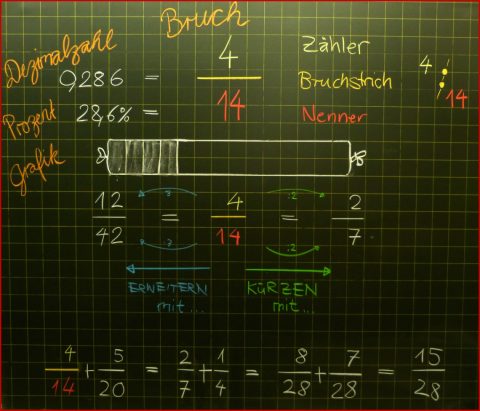 Bruch
Dezimalzahl 0,286 = 4/14
Zähler
Bruchstrich
Nenner
4 : 14
Prozent 28,6% =
Grafik
·3 :2
12/42 = 4/14 = 2/7
·3 :2
ERWEITERN KÜRZEN
mit... mit...
4/14 + 5/20 = 2/7 + 1/4 = 8/28 + 7/28 = 15/28